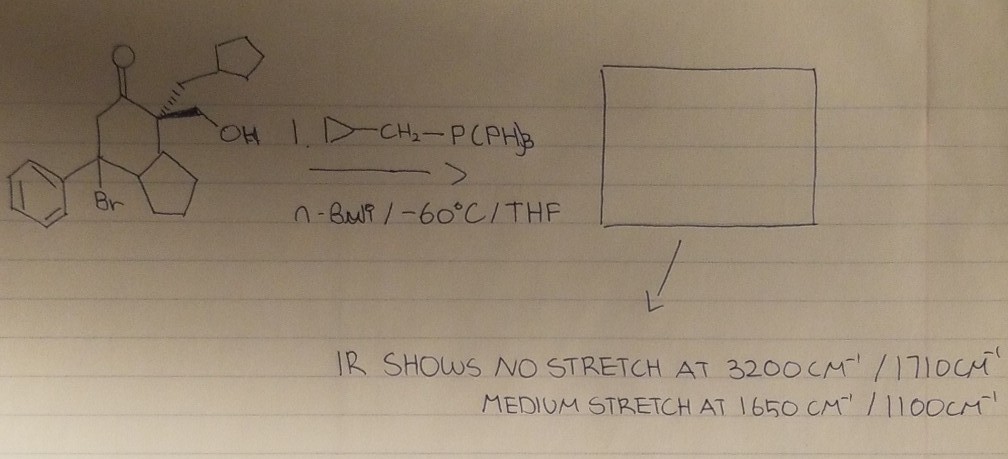 O
OH
1. ▷-CH₂-P(PH)₃
Br
n-BuLi / -60°C / THF
IR SHOWS NO STRETCH AT 3200CM⁻¹ / 1710CM⁻¹
MEDIUM STRETCH AT 1650 CM⁻¹ / 1100CM⁻¹